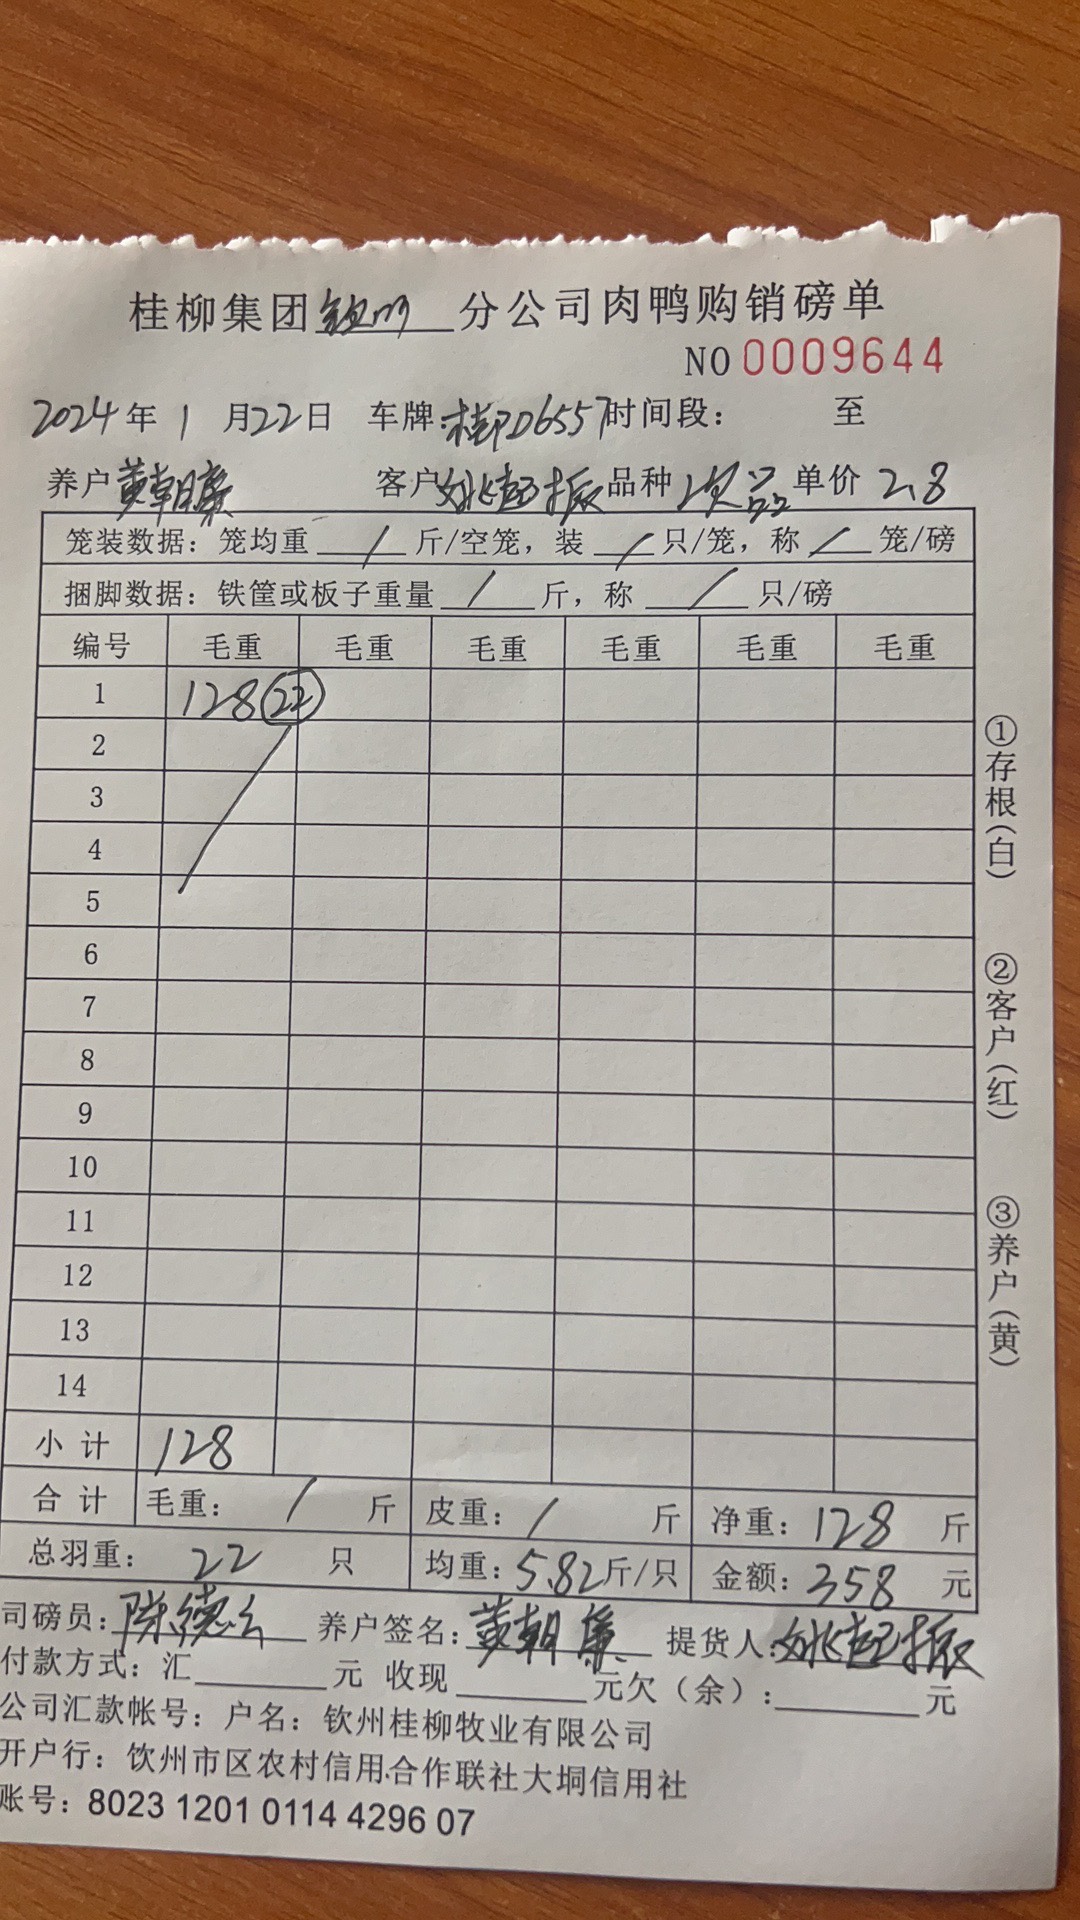 桂柳集团钦州分公司肉鸭购销磅单
NO 0009644
2024年1月22日 车牌:桂PD6557 时间段: 至
养户 黄朝 客户 姚起振 品种 次品 单价 2.8
笼装数据:笼均重 / 斤/空笼,装 / 只/笼,称 / 笼/磅
捆脚数据:铁筐或板子重量 / 斤,称 / 只/磅
编号 毛重 毛重 毛重 毛重 毛重 毛重
1 128 22
2
3
4
5
6
7
8
9
10
11
12
13
14
小计 128
合计 毛重: / 斤 皮重: / 斤 净重: 128 斤
总羽重: 22 只 均重: 5.82 斤/只 金额: 358 元
司磅员: 陈德云 养户签名: 黄朝 提货人: 姚起振
付款方式:汇 元 收现 元欠(余): 元
公司汇款帐号:户名:钦州桂柳牧业有限公司
开户行:钦州市区农村信用合作联社大垌信用社
账号:8023 1201 0114 4296 07
①存根(白)
②客户(红)
③养户(黄)